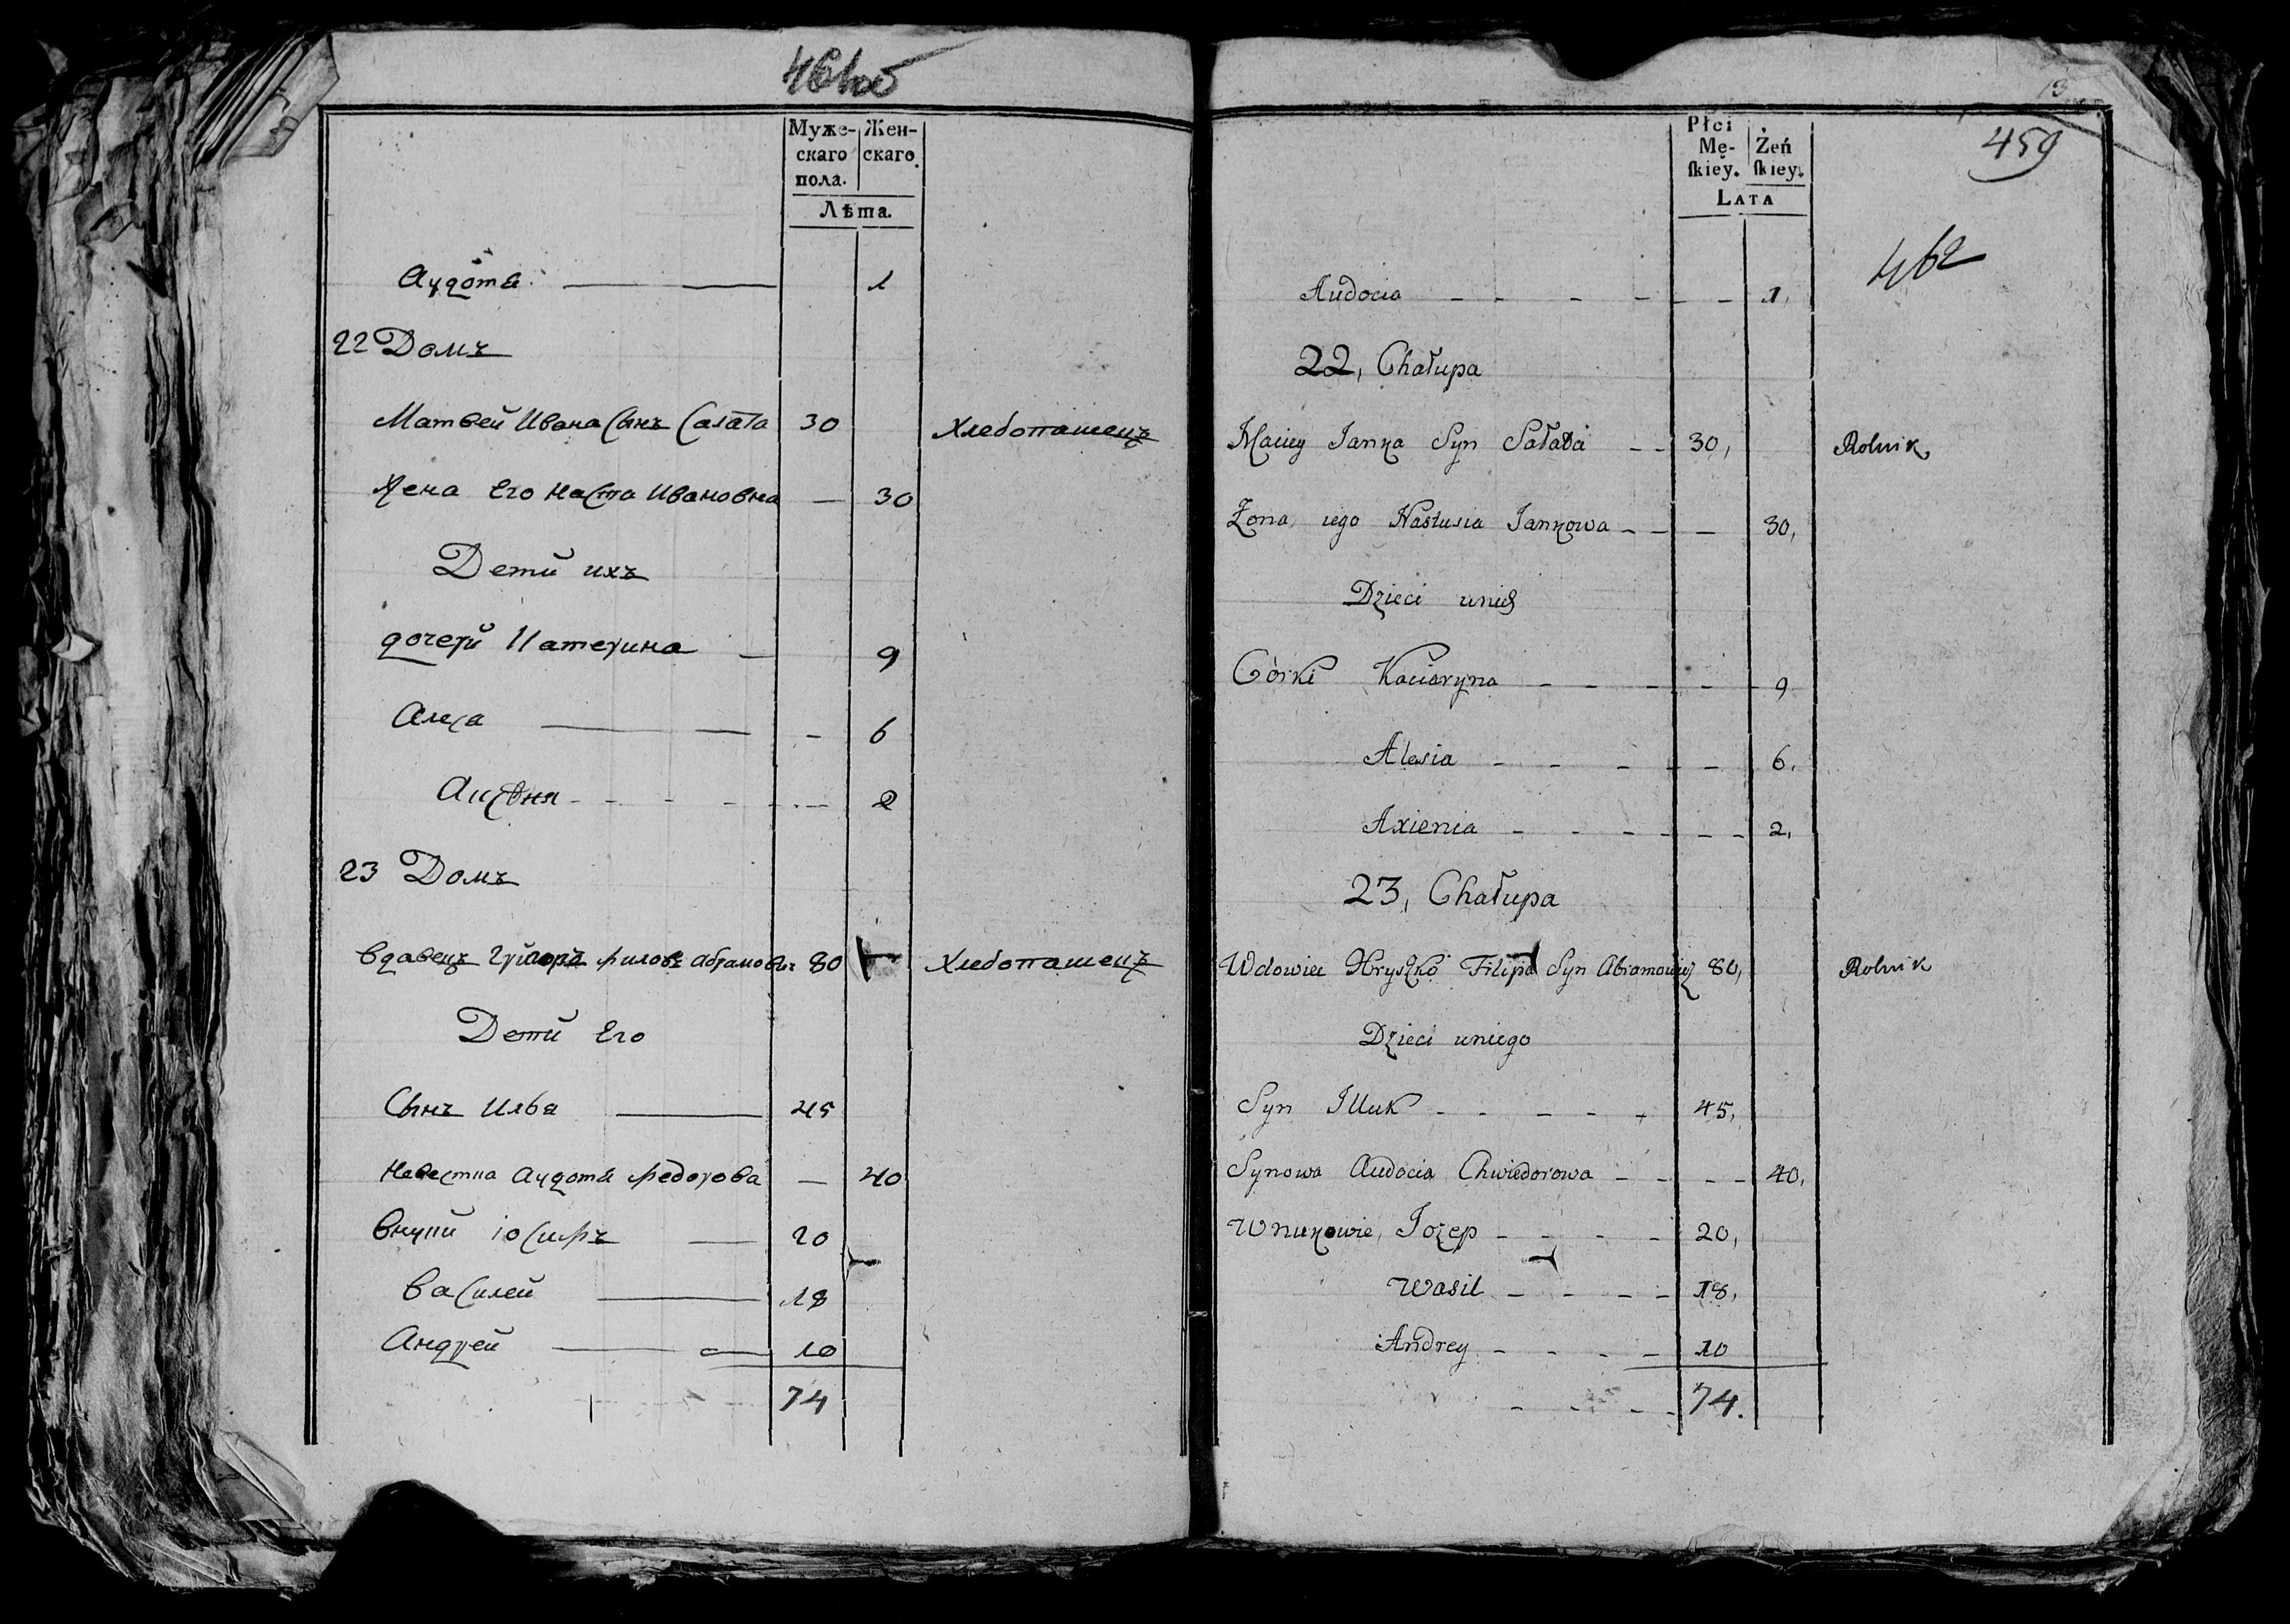 461об
Муже- Жен-
скаго скаго.
пола.
Лѣта.
Аудотя 1
22 Домъ
Матвей Ивана Сынъ Салата 30 Хлебопашецъ
Жена Его Наста Ивановна — 30
Дети ихъ
дочери Катерина — 9
Алеса — 6
Аксеня - - - - - — 2
23 Домъ
Вдавецъ Григоръ Абрамовичъ 80 Хлебопашецъ
Дети Его
Сынъ Илья 45
Невестка Аудотя Федорова — 40
Внуки Іосифъ 20
Василей 18
Андрей 10
74
13
Płci
Mę- Żeń
ſkiey. ſkiey.
LATA
459
462
Audocia - - - - - - 1,
22, Chałupa
Maciey Janka Syn Sałata - - 30, Rolnik
Żona iego Nastusia Jankowa - - - 30,
Dzieci unich
Córki Kaciaryna - - - - - 9
Alesia - - - - - 6.
Axienia - - - - - - 2,
23, Chałupa
Wdowiec Hryszko Filipa Syn Abramowicz 80, Rolnik
Dzieci uniego
Syn Illuk - - - - - 45,
Synowa Audocia Chwiedorowa - - - - 40,
Wnukowie, Jozep - - - - 20,
Wasil - - - - 18,
Andrey - - - - 10
- - - - 74.